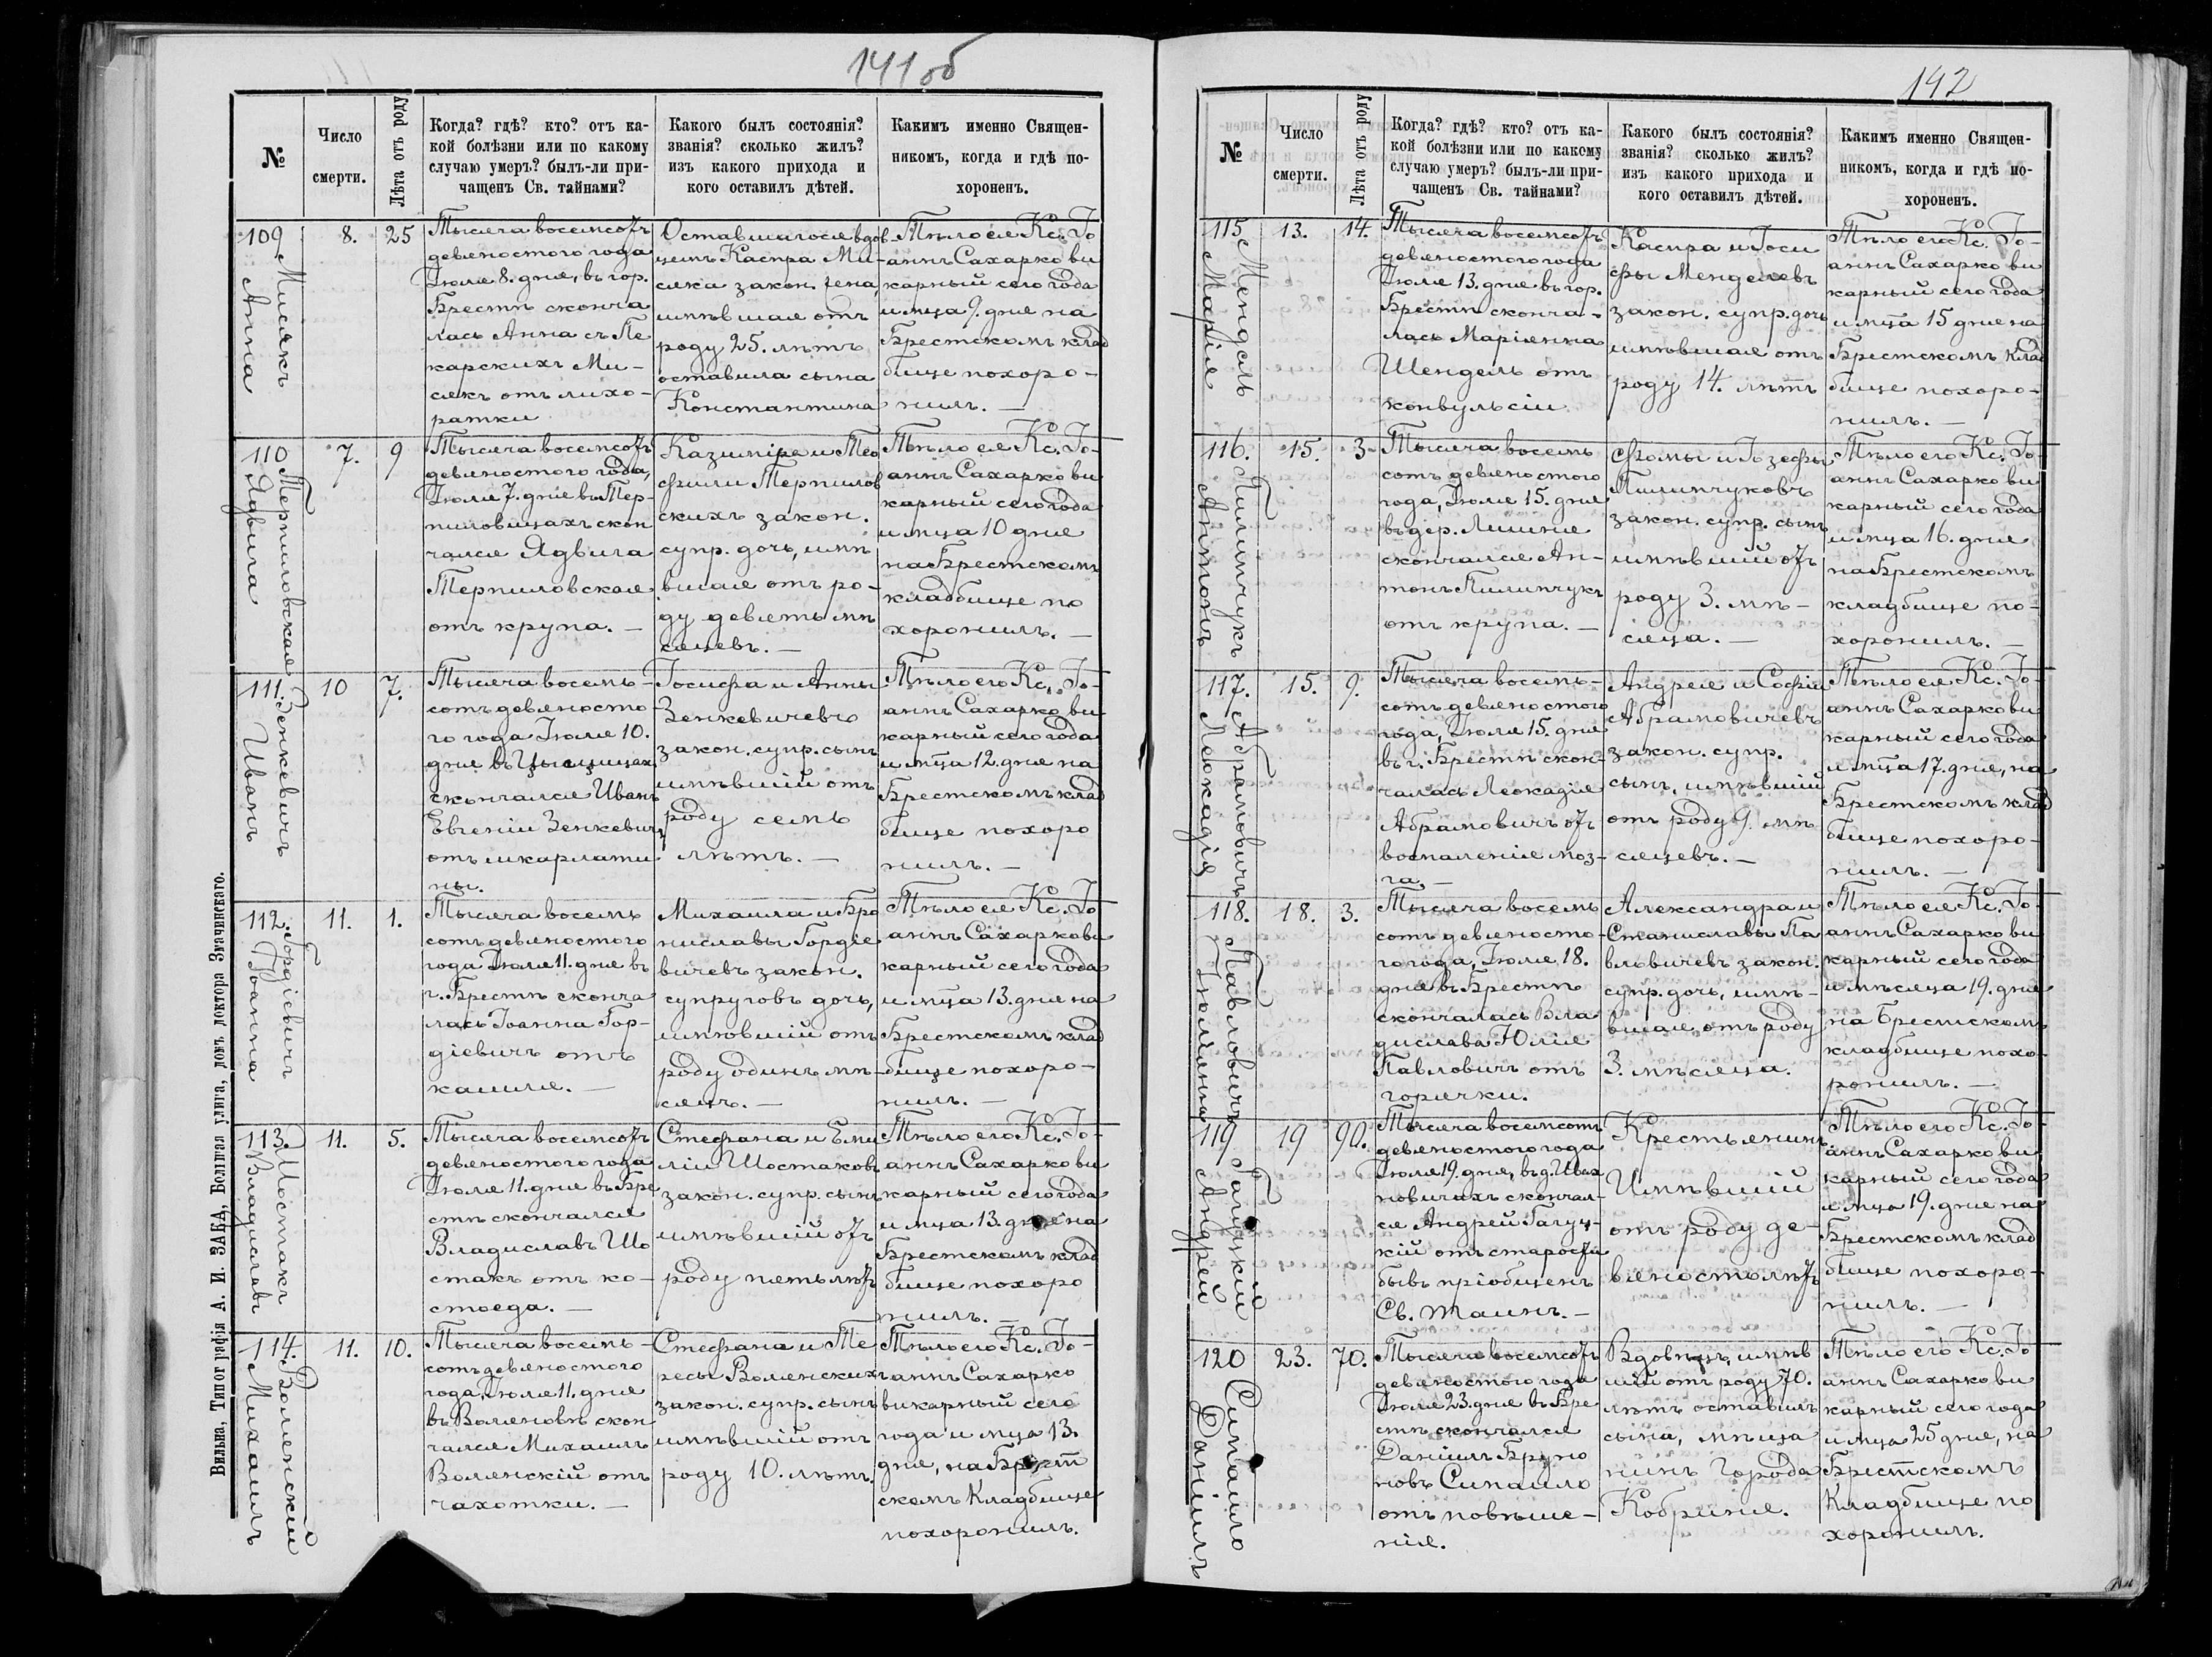 141 об
№
Число
смерти.
Лѣта отъ роду
Когда? гдѣ? кто? отъ ка-
кой болѣзни или по какому
случаю умеръ? былъ-ли при-
чащенъ Св. тайнами?
Какого былъ состоянія?
званія? сколько жилъ?
изъ какого прихода и
кого оставилъ дѣтей.
Какимъ именно Священ-
никомъ, когда и гдѣ по-
хороненъ.
109
Мисякъ
Анна
8.
25
Тысяча восемсотъ
девяностого года
Іюля 8. дня, въ гор.
Брестѣ сконча
лась Анна съ Пе
карскихъ Ми-
сякъ отъ лихо-
ратки
Оставшагося вдов
цемъ Каспра Ми-
сяка закон. жена,
имѣвшая отъ
роду 25. лѣтъ
оставила сына
Константина
Тѣло ея Кс. Іо
аннъ Сахарко ви
карный сего года
и мца 9. дня на
Брестскомъ клад
бище похоро-
нилъ. —
110
Терпиловская
Ядвига
7.
9
Тысяча восемсотъ
девяностого года,
Іюля 7. дня въ Тер-
пиловицахъ скон
чался Ядвига
Терпиловская
отъ крупа. —
Казиміра и Тео
фили Терпилов
скихъ закон.
супр. дочь, имѣ
вшая отъ ро-
ду девять мѣ
сяцевъ. —
Тѣло ея Кс. Іо-
аннъ Сахарко ви
карный сего года
и мца 10 дня
на Брестскомъ
кладбище по
хоронилъ. —
111.
Зенкевичъ
Иванъ
10
7.
Тысяча восемь-
сотъ девяносто
го года Іюля 10.
дня въ
скончался Иванъ
Евгеніи Зенкевичъ
отъ шкарлати
ны.
Іосифа и Анны
Зенкевичевъ
закон. супр. сынъ
имѣвшій отъ
роду семь
лѣтъ. —
Тѣло его Кс. Іо-
аннъ Сахарко ви-
карный сего года
и мца 12. дня на
Брестскомъ клад
бище похоро
нилъ. —
112.
Гордіевичъ
Іоанна
11.
1.
Тысяча восемь
сотъ девяностого
года Іюля 11. дня въ
г. Брестѣ сконча
лась Іоанна Гор-
діевичъ отъ
кашля. —
Михаила и Бро
ниславы Гордіе
вичевъ закон.
супруговъ дочь,
имѣвшій отъ
роду одинъ мѣ-
сяцъ. —
Тѣло ея Кс. Іо
аннъ Сахарко ви
карный сего года
и мца 13. дня на
Брестскомъ клад
бище похоро-
нилъ. —
113.
Шостакъ
Владиславъ
11.
5.
Тысяча восемсотъ
девяностого года
Іюля 11. дня въ Бре
стѣ скончался
Владиславъ Шо
стакъ отъ ко-
стоеда. —
Стефана и Еми
ліи Шостаковъ
закон. супр. сынъ
имѣвшій отъ
роду пять лѣтъ
Тѣло его Кс. Іо-
аннъ Сахарко ви
карный сего года
и мца 13. дня на
Брестскомъ клад
бище похоро
нилъ. —
114.
Волянскій
Михаилъ
11.
10.
Тысяча восемь-
сотъ девяностого
года, Іюля 11. дня
въ Волянове скон
чался Михаилъ
Волянскій отъ
чахотки. —
Стефана и Те
ресы Волянскихъ
закон. супр. сынъ
имѣвшій отъ
роду 10. лѣтъ.
Тѣло его Кс. Іо-
аннъ Сахарко
викарный сего
года и мца 13.
дня, на Брест
скомъ Кладбище
похоронилъ.
Вильна, Типографія А. И. ЗАКА, Большая улица, домъ доктора Значинскаго.
142
№
Число
смерти.
Лѣта отъ роду
Когда? гдѣ? кто? отъ ка-
кой болѣзни или по какому
случаю умеръ? былъ-ли при-
чащенъ Св. тайнами?
Какого былъ состоянія?
званія? сколько жилъ?
изъ какого прихода и
кого оставилъ дѣтей.
Какимъ именно Священ-
никомъ, когда и гдѣ по-
хороненъ.
115
Мендель
Марія
13.
14.
Тысяча восемсотъ
девяностого года
Іюля 13. дня въ гор.
Брестѣ сконча-
лась Маріянна
Шендель отъ
конвульсіи
Каспра и Іоси
фы Менделевъ
закон. супр. дочь
имѣвшая отъ
роду 14. лѣтъ
Тѣло его Кс. Іо-
аннъ Сахарко ви
карный сего года
и мца 15 дня на
Брестскомъ клад
бище похоро-
нилъ. —
116.
Пилипчукъ
Антонъ
15.
3
Тысяча восемь
сотъ девяностого
года, Іюля 15. дня
въ дер.
скончался Ан-
тонъ Пилипчукъ
отъ крупа. —
Фомы и Іозефы
Пилипчуковъ
закон. супр. сынъ
имѣвшій отъ
роду 3. мѣ-
сяца. —
Тѣло его Кс. Іо-
аннъ Сахарко ви
карный сего года
и мца 16. дня
на Брестскомъ
кладбище по-
хоронилъ. —
117.
Абрамовичъ
Леокадія
15.
9.
Тысяча восемь-
сотъ девяностого
года, Іюля 15. дня
въ г. Брестѣ скон-
чалась Леокадія
Абрамовичъ отъ
воспаленія моз-
га. —
Андрея и Софіи
Абрамовичевъ
закон. супр.
сынъ, имѣвшій
отъ роду 9. мѣ
сяцевъ. —
Тѣло ея Кс. Іо-
аннъ Сахарко ви
карный сего года
и мца 17. дня, на
Брестскомъ клад
бище похоро-
нилъ. —
118.
Павловичъ
18.
3.
Тысяча восемь
сотъ девяносто-
го года, Іюля 18.
дня въ Брестѣ
скончалась Вла
дислава Юлія
Павловичъ отъ
горячки.
Александра и
Станиславы Па
вловичевъ закон.
супр. дочь, имѣ-
вшая, отъ роду
3. мѣсяца.
Тѣло ея Кс. Іо-
аннъ Сахарко ви
карный сего года
и мѣсяца 19. дня
на Брестскомъ
кладбище похо-
ронилъ. —
119
Гагуцкій
Андрей
19
90.
Тысяча восемсотъ
девяностого года
Іюля 19. дня, въ д. Ивах
новичахъ скончал-
ся Андрей Гагуц-
кій отъ старости
бывъ пріобщенъ
Св. Таинъ. —
Крестьянинъ.
Имѣвшій
отъ роду де-
вяносто лѣтъ
Тѣло его Кс. Іо-
аннъ Сахарко ви
карный сего года
и мца 19. дня на
Брестскомъ клад
бище похоро-
нилъ. —
120
Сипайло
Даніилъ
23.
70.
Тысяча восемсотъ
девяностого года
Іюля 23. дня въ Бре
стѣ скончался
Даніилъ Бруно
новъ Сипайло
отъ повѣше-
нія.
Вдовецъ, имѣв
шій отъ роду 70.
лѣтъ оставилъ
сына, мѣща
нинъ города
Кобриня.
Тѣло его Кс. Іо
аннъ Сахарко ви
карный сего года
и мца 25 дня, на
Брестскомъ
Кладбище по
хоронилъ.